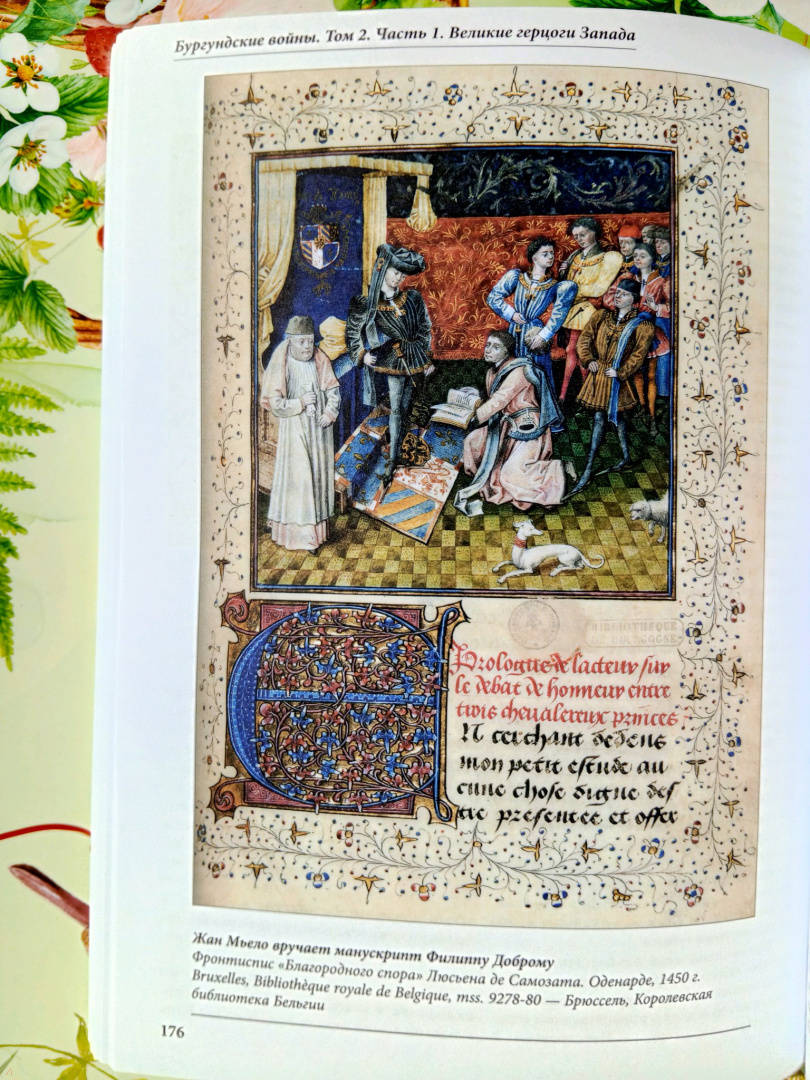 Бургундские войны. Том 2. Часть 1. Великие герцоги Запада
BIBLIOTHEQUE
DE BOURGOGNE
Prologue de lacteur sur
le debat de honneur entre
trois chevalereux princes
N cerchant dedens
mon petit estude au
cune chose digne des
tre presentee et offer
Жан Мьело вручает манускрипт Филиппу Доброму
Фронтиспис «Благородного спора» Люсьена де Самозата. Оденарде, 1450 г.
Bruxelles, Bibliothèque royale de Belgique, mss. 9278-80 — Брюссель, Королевская
библиотека Бельгии
176